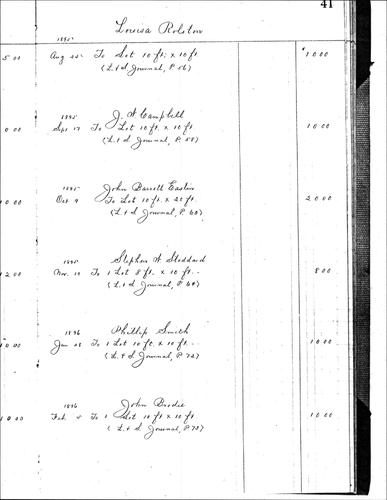 41
Louisa Rolston
1895
5 00 Aug To Lot 10 ft. x 10 ft. $10 00
(L. & S Journal, P. 56)
J. W. Campbell
1895
0 00 Sept 17 To Lot 10 ft. x 10 ft. 10 00
(L. & S. Journal, P. 58)
John Barrett
1895
10 00 Oct 9 To Lot 10 ft. x 20 ft. 20 00
(L. & S. Journal, P. 60)
Stephen W Stoddard
1895
12 00 Nov. To 1 Lot 8 ft. x 10 ft. 8 00
(L. & S Journal, P 64)
Phillip Smith
1896
10 00 Jan To 1 Lot 10 ft. x 10 ft. 10 00
(L. & S Journal, P 72)
John Brodie
1896
10 00 Feb To 1 Lot 10 ft x 10 ft. 10 00
(L. & S. Journal, P 73)